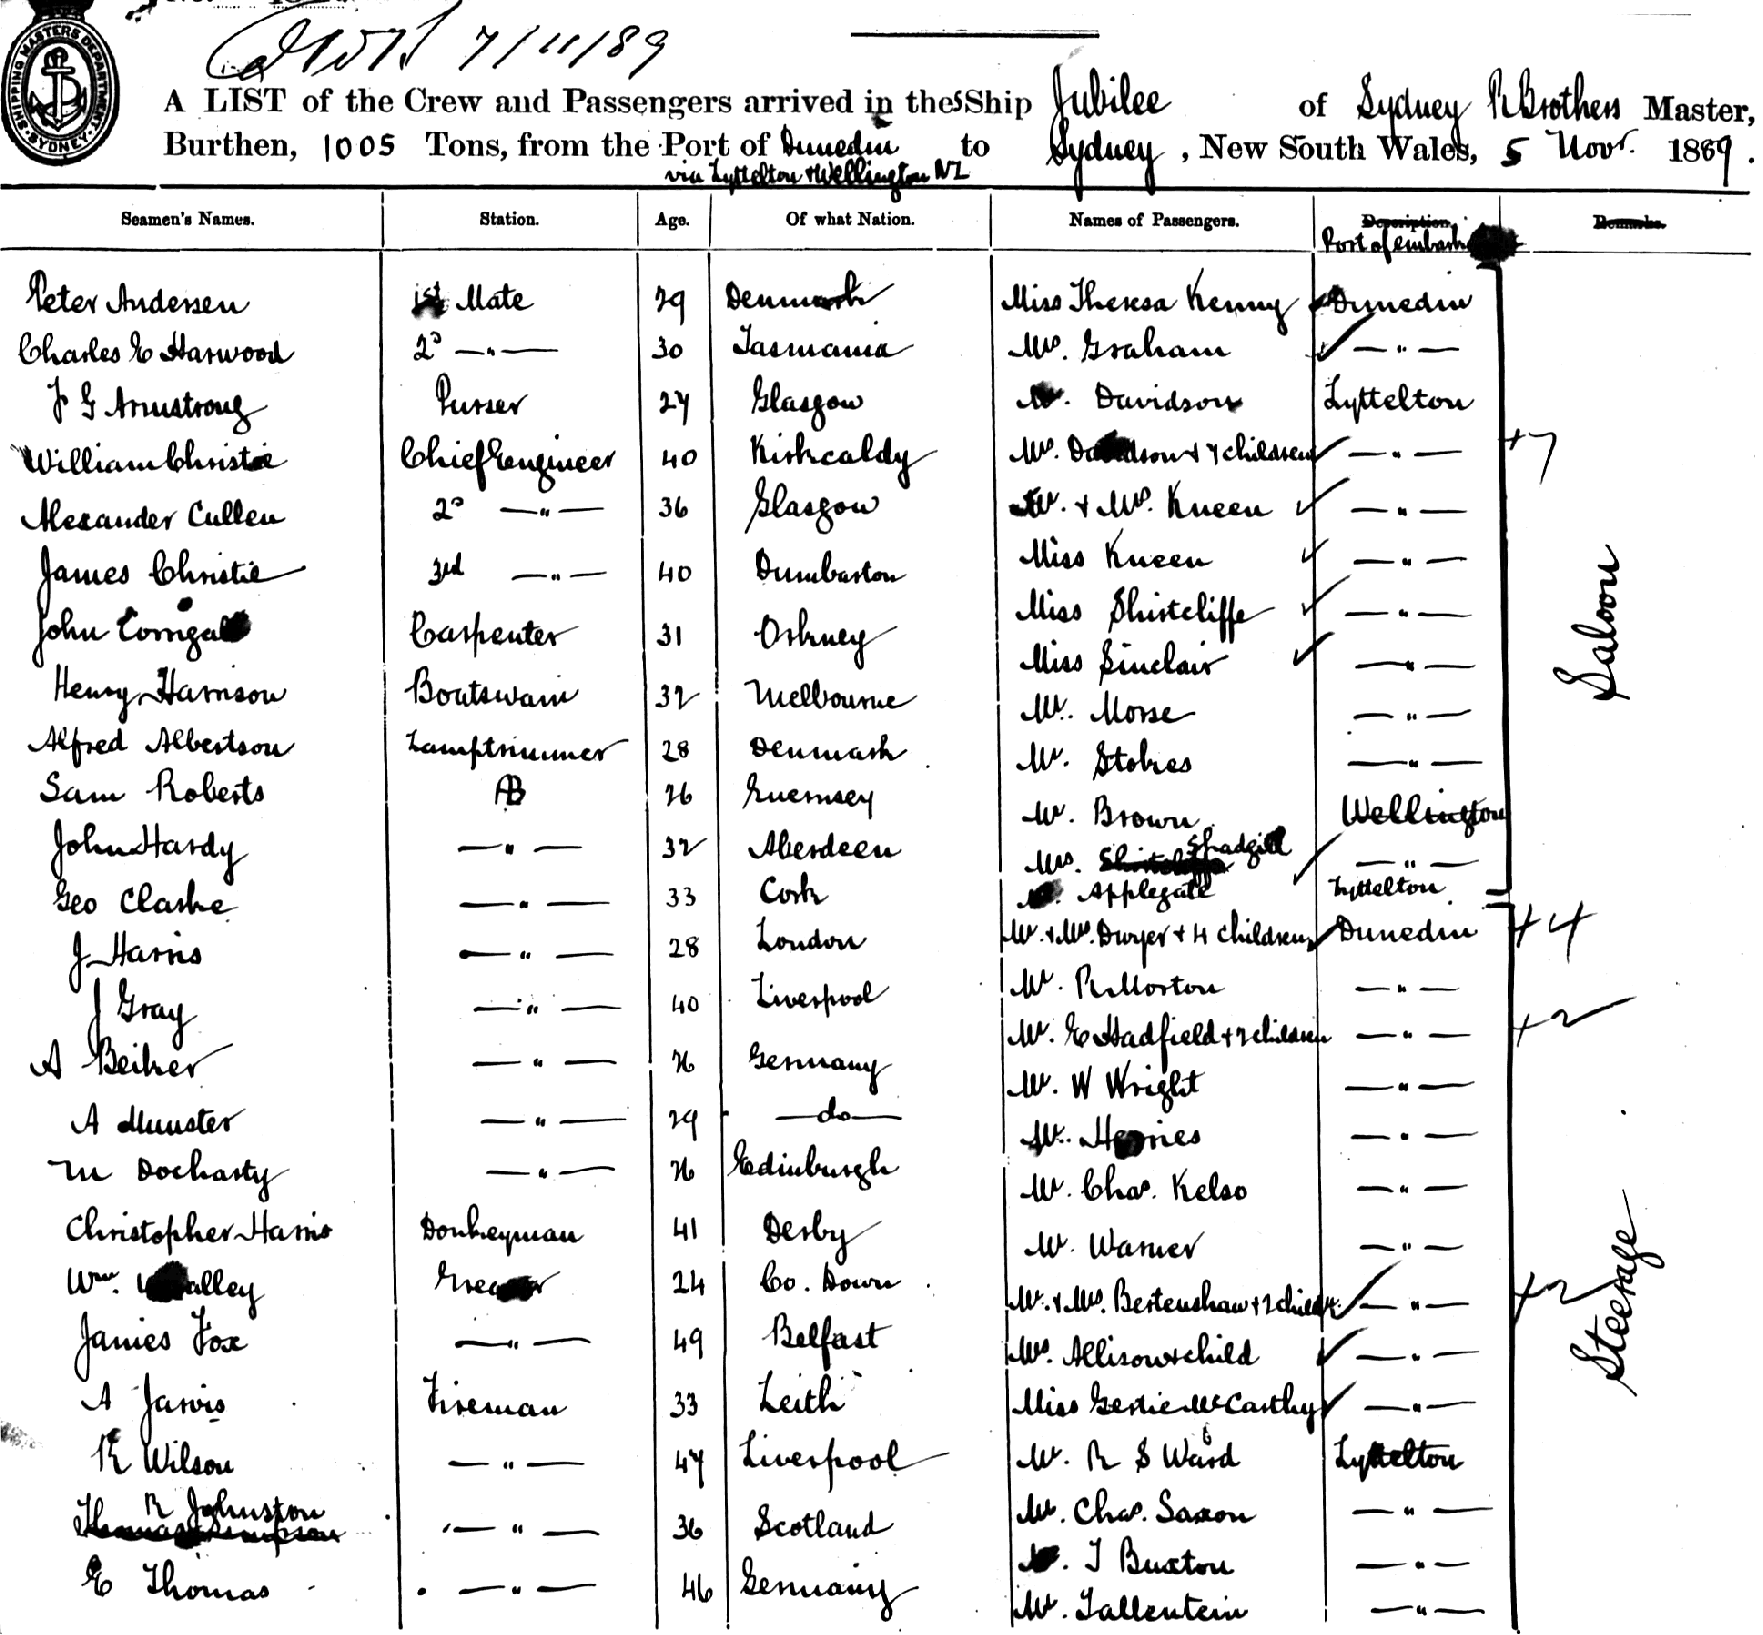 SHIPPING MASTERS DEPARTMENT SYDNEY
7/11/89
A LIST of the Crew and Passengers arrived in the SShip Jubilee of Sydney R Brothers Master,
Burthen, 1005 Tons, from the Port of Dunedin to Sydney, New South Wales, 5 Novr. 1889.
via Lyttelton & Wellington NZ
Seamen's Names. Station. Age. Of what Nation. Names of Passengers. Description Remarks.
Port of embark
Peter Andersen 1st Mate 29 Denmark Miss Theresa Kenny Dunedin
Charles E Harwood 2d —"— 30 Tasmania Mrs. Graham —"—
J G Armstrong Purser 27 Glasgow Davidson Lyttelton
William Christie Chief Engineer 40 Kirkcaldy Mrs. Davidson & 7 children —"— +7
Alexander Cullen 2d —"— 36 Glasgow Mr. & Mrs. Kneen —"—
James Christie 3rd —"— 40 Dumbarton Miss Kneen —"—
John Carpenter 31 Orkney Miss Shirtcliffe —"—
Saloon
Henry Harrison Boatswain 32 Melbourne Miss Sinclair —"—
Alfred Albertson Lamptrimmer 28 Denmark Mr. Morse —"—
Sam Roberts AB 26 Guernsey Mr. Stokes —"—
John Hardy —"— 32 Aberdeen Mr. Brown Wellington
Mrs. Shirtcliffe Spadgill —"—
Geo Clarke —"— 33 Cork Applegate Lyttelton
J Harris —"— 28 London Mr. & Mrs. Dwyer & 4 children Dunedin +4
J Gray —"— 40 Liverpool Mr. R Morton —"—
A Beiker —"— 26 Germany Mr. E Hadfield & 2 children —"— +2
A Munster —"— 29 —do— Mr. W Wright —"—
M Docharty —"— 26 Edinburgh Mr. —"—
Christopher Harris Donkeyman 41 Derby Mr. Chas. Kelso —"—
Mr. Warner —"—
Wm. Greaser 24 Co. Down Mr. & Mrs. Bertenshaw & 2 childr. —"— +2
Steerage
James Fox —"— 49 Belfast Mrs. Allison & child —"—
A Jarvis Fireman 33 Leith Miss Gertie McCarthy —"—
R Wilson —"— 47 Liverpool Mr. R S Ward Lyttelton
R Johnston
—"— 36 Scotland Mr. Chas. Saxon —"—
E Thomas —"— 46 Germany T Buxton —"—
Mr. Tallentein —"—